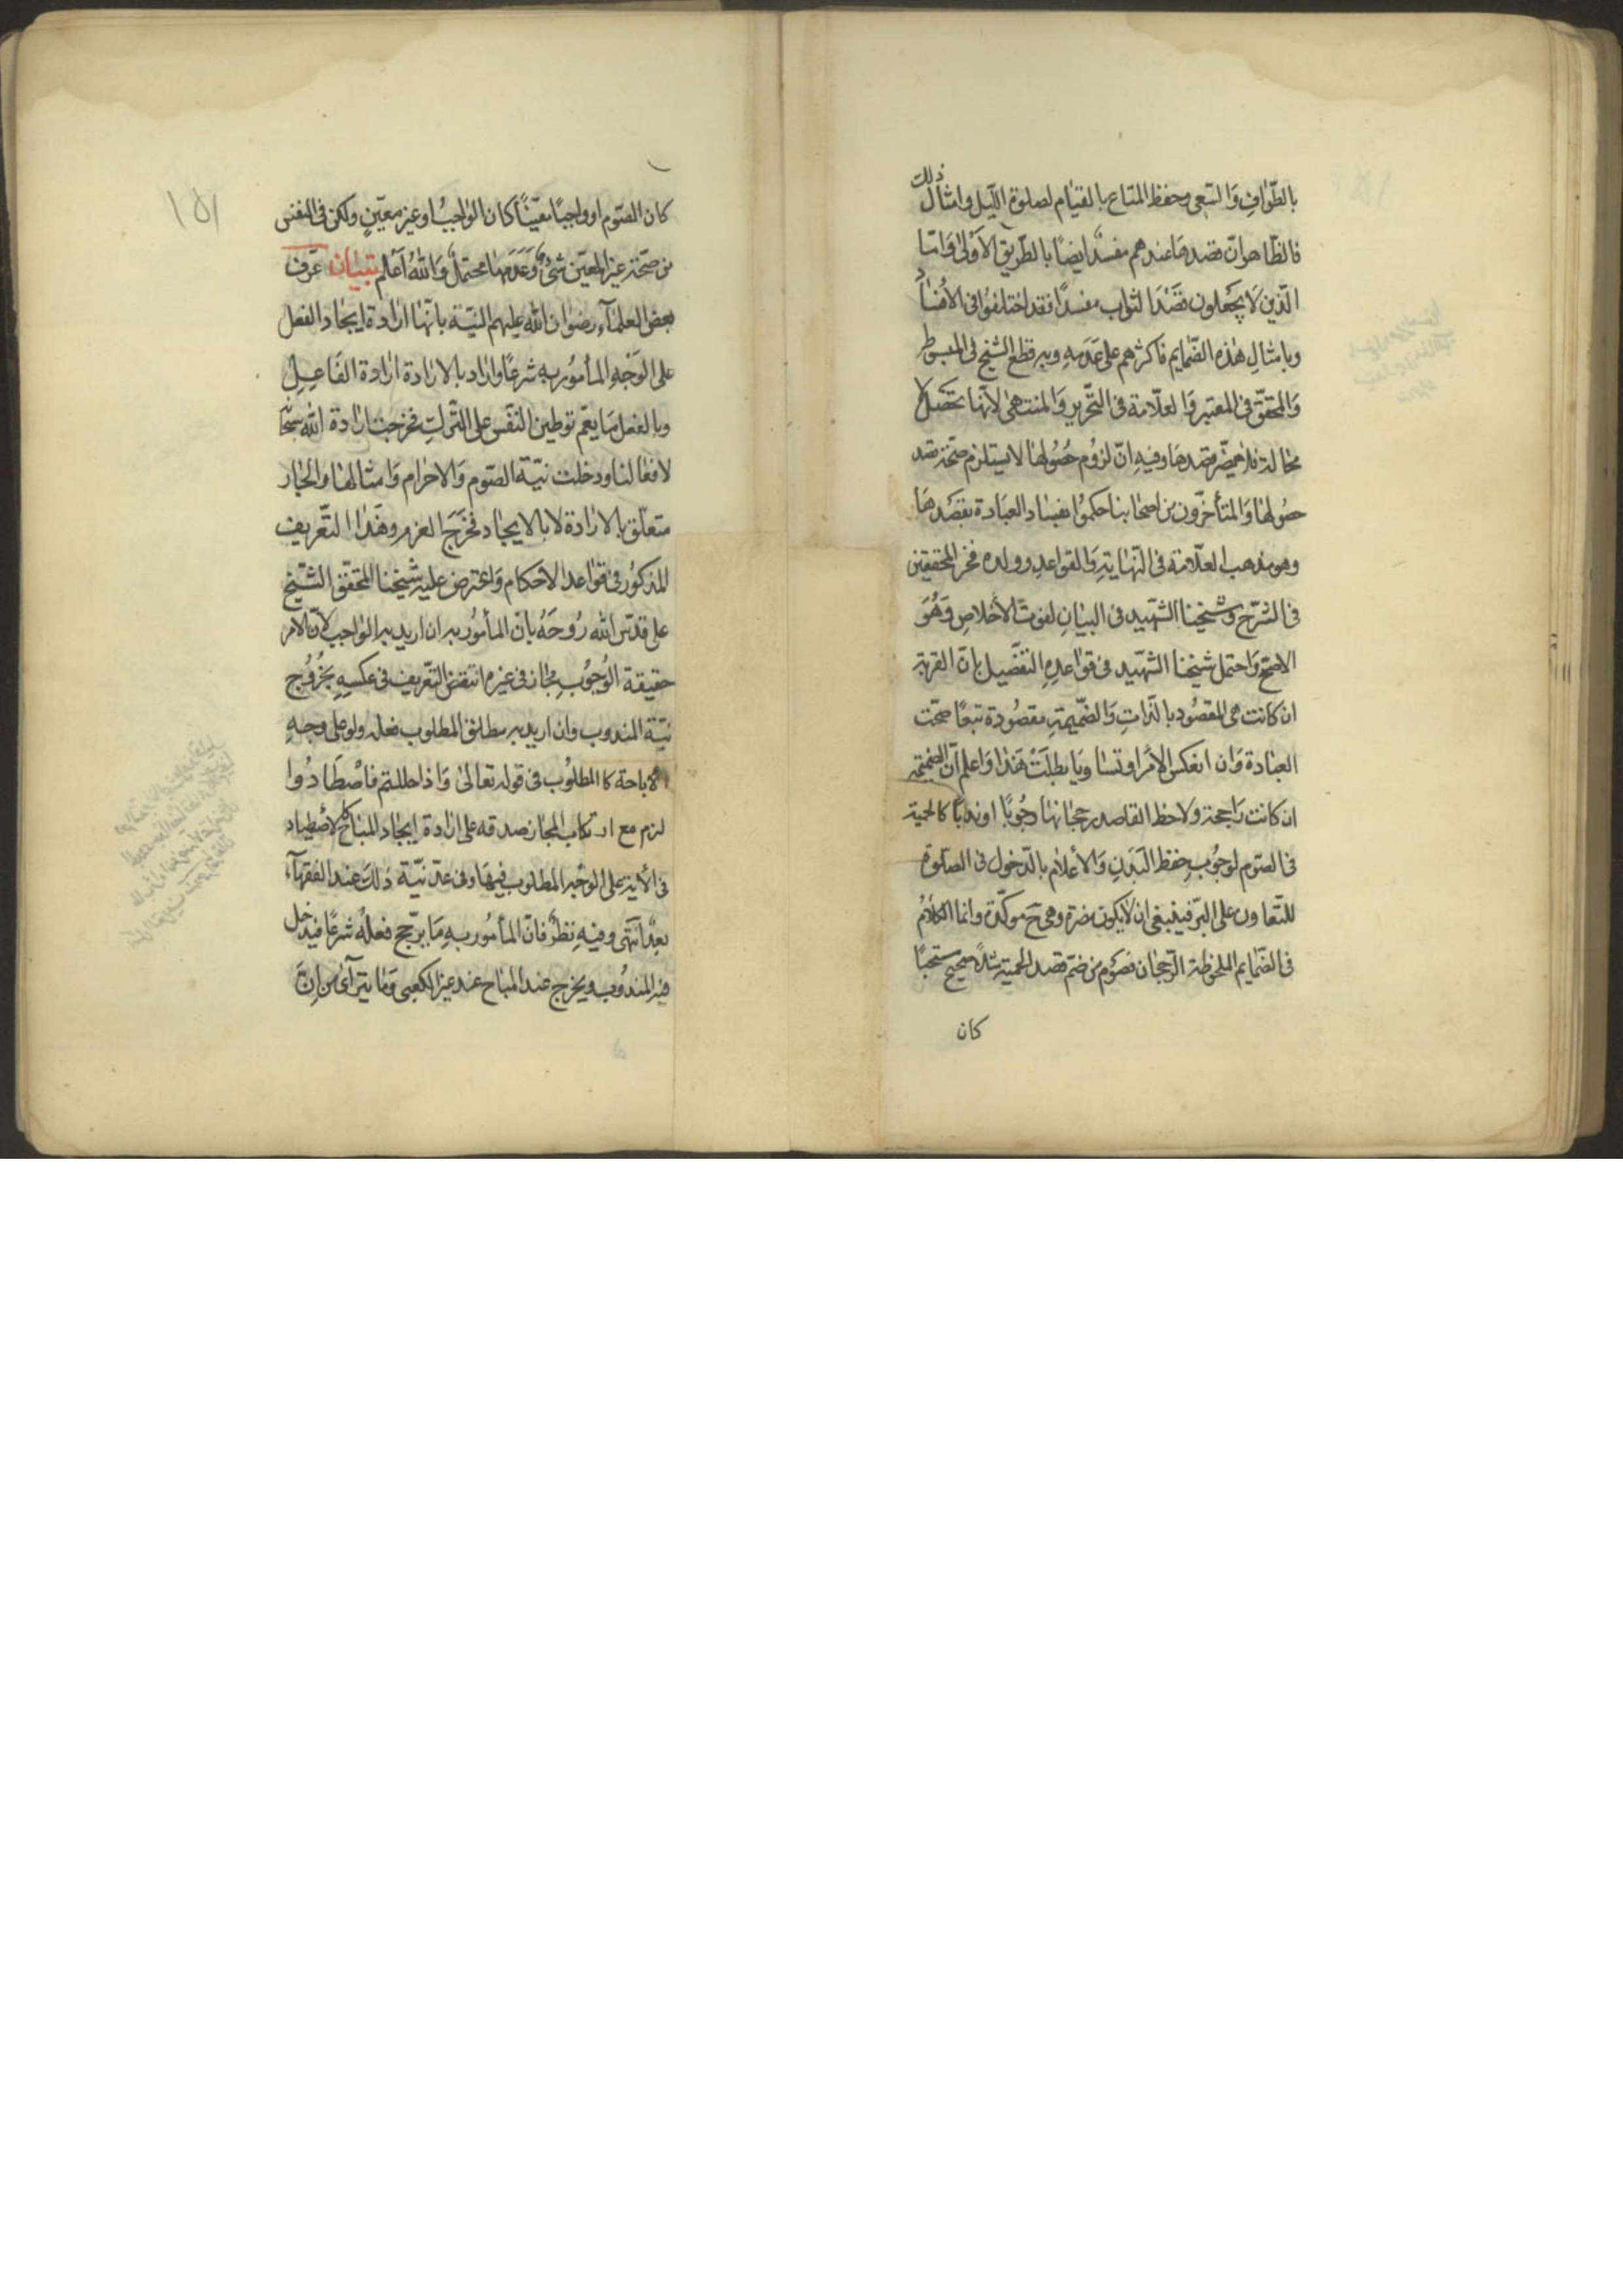 بالطّوافِ وَالسّعی وحفظ المتاع بالقیام لصلوة اللّیل وامثال ذلك
فالظّاهر انّ قصدها عندهم مفسد ایضًا بالطّریق الاَولیٰ وَامّا
الّذین لَا یجعلون قصَدَ الثواب مفسدًا فقد اختلفوُا فی الافسٰاد
وبامثالِ هٰذه الضّمایم فاکثرهم علی عَدَمِهِ وبه قطع الشیخ فی المبسُوطِ
وَالمحقّق فی المعتبر وَالعلّامة فی التّحریر وَالمنتهیٰ لانّها تحصل لا
محالة فلا یضّر قصدهَا وفیهِ انّ لزُوم حصُولهٰا لا یستلزم صحّة قصد
حصُولهٰا وَالمتأخّرون من اصحٰابنا حکموُا بفسٰاد العبَادة بقصَدهَا
وهو مذهب العلّامة فی النّهٰایةِ وَالقواعدِ وولده فخر المحققین
فی الشّرح وَشیخنا الشّهید فی البیَانِ لفوت الأخلاصِ وَهُوَ
الاصحّ وَاحتمل شیخنا الشّهید فی قوٰاعدِهِ التفصیل بانّ القربة
ان کانت هی المقصُود بالذّاتِ وَالضّمیمةِ مقصُودة تبعًا صحّت
العبٰادة وَان انعکس الأمر او تسٰاویَا بطلَتْ هَذٰا وَاعلم انّ الضّمیمة
ان کانت رٰاجحة ولاحظ القاصد رجحٰانهٰا وجُوبًا او ندبًا کالحمیة
فی الصّوم لوجُوبِ حفظ البَدَنِ وَالأعلام بالدّخول فی الصّلوة
للتّعاون علی البّر فینبغی ان لا یکون مضرة وهی ح موکّدة وانما الکلامُ
فی الضّمایم الملحوظة الرّجحٰان فصَوم من ضمّ قصد الحمیة مثلاً صحیح مستحبًا
کان
١٥١
کان الصّوم او واجبًا معیّنًا کان الوٰاجبُ او غیر معیّنٍ ولکن فی النفس
من صحّة غیر المعیّن شئٌ وَعَدَمهٰا محتملٌ وَاللهُ اَعْلم تبیٰان عَرّف
بعض العلمٰاءِ رضوٰان الله علیهم النیّة بانّهٰا ارٰادة ایجٰاد الفعل
علی الوَجْهِ المأموُر بهِ شرعًا وارٰاد بالارٰادة ارٰادة الفٰاعِلِ
وبالفعل مَا یعّم توطین النفّس علی التّركِ فخرجت ارٰادة الله سبحٰا
لافعٰالنا ودخلت نیّة الصّوم وَالاحرام وَامثالهٰا والجٰار
متعلّق بالارٰادة لا بالایجٰاد فخَرَجَ العزم وهَذٰا التّعْریف
المذکوُر فی قوٰاعد الأحکام وَاعترض علیه شیخنا المحقّق الشّیخ
علی قدّس الله رُوحَهُ بانّ المأموُر به ان ارید به الوٰاجب لانّ الامر
حقیقة الوُجوُبِ مجٰاز فی غیره انتقض التّعریف فی عکسِهِ بخُروُج
نیّة المندوب وان ارید به مطلق المطلوب فعله ولو علی وجهِ
الاباحة کالمطلوُب فی قوله تعٰالیٰ وَاذا حللتم فاصْطَادُوا
لزم مع ارتکاب المجٰاز صدقه علی ارٰادة ایجٰاد المبٰاح کالأصطیاد
فی الأیة علی الوَجْهِ المطلوب فیهَا وفی عدّ نیّة ذٰلك عند الفقهٰآء
بُعدٌ انتَهی وفیهِ نظرٌ فانّ المأموُر بهِ مَا یرّجح فعلُهُ شرعًا فیدخل
فیه المندوُب ویخرج عند المبٰاح عند غیر الکعبی وَمٰا یترآیٰ من انّ